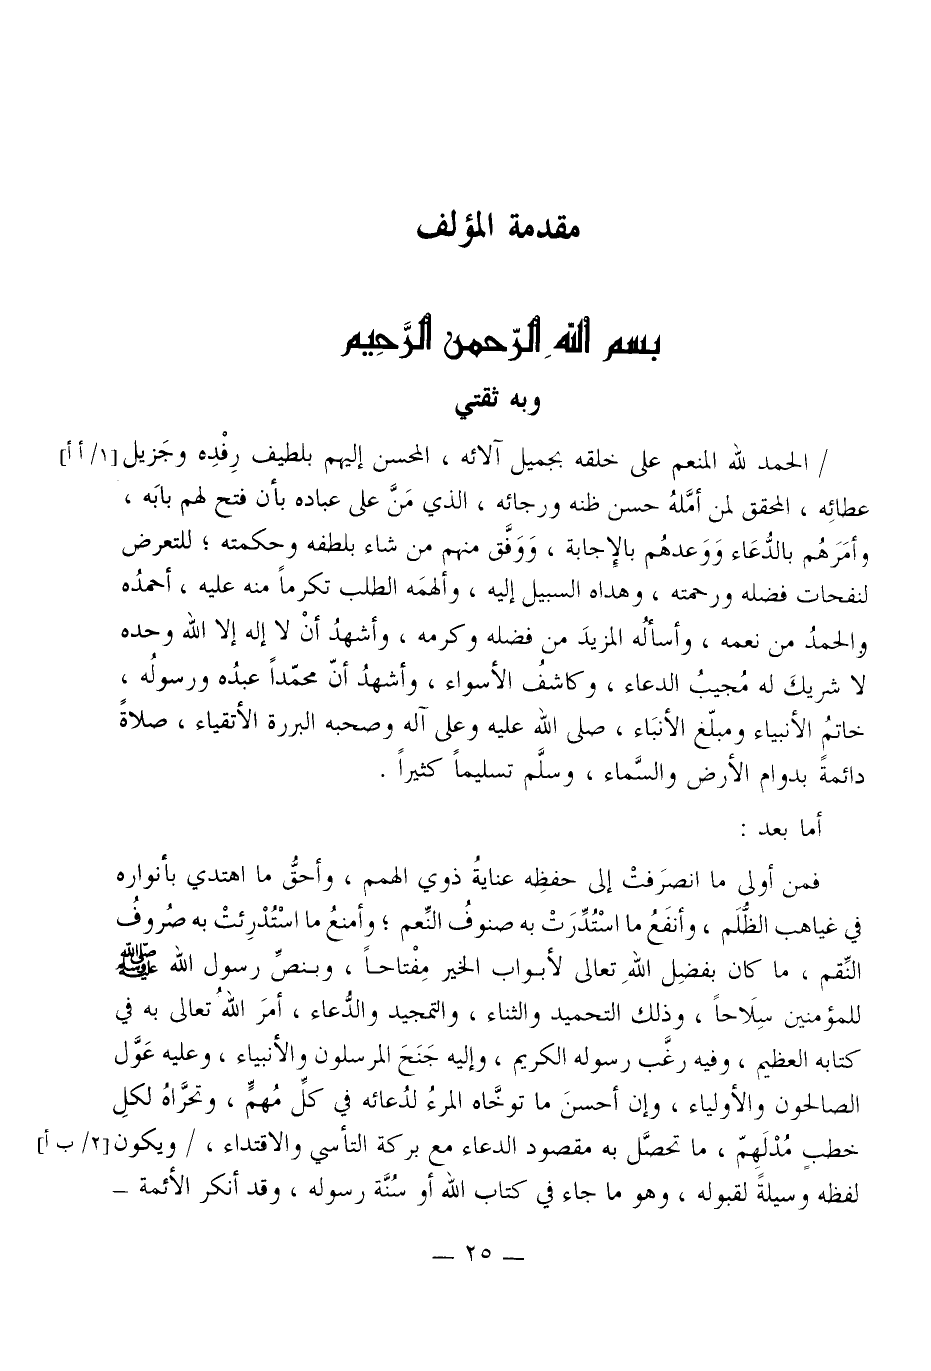 مقدمة المؤلف
بسم اللهِ الرّحمن الرَّحِيم
وبه ثقتي
/ الحمد لله المنعم على خلقه بجميل آلائه ، المحسن إليهم بلطيف رِفْدِه وجَزيل [١/ أ أ]
عطائِه ، المحقق لمن أمَّلهُ حسن ظنه ورجائه ، الذي مَنَّ على عباده بأن فتح لهم بابَه ،
وأمَرَهُم بالدُّعَاء وَوَعدهُم بالإِجابة ، وَوَفَّق منهم من شاء بلطفه وحكمته ؛ للتعرض
لنفحات فضله ورحمته ، وهداه السبيل إليه ، وألهمَه الطلب تكرماً منه عليه ، أحمدُه
والحمدُ من نعمه ، وأسألُه المزيدَ من فضله وكرمه ، وأشهدُ أنْ لا إله إلا الله وحده
لا شريكَ له مُجيبُ الدعاء ، وكاشفُ الأسواء ، وأشهدُ أنّ محمّداً عبدُه ورسولُه ،
خاتمُ الأنبياء ومبلّغ الأنبَاء ، صلى الله عليه وعلى آله وصحبه البررة الأتقياء ، صلاةً
دائمةً بدوام الأرض والسَّماء ، وسلَّم تسليماً كثيراً .
أما بعد :
فمن أولى ما انصرَفتْ إلى حفظِه عنايةُ ذوي الهمم ، وأحقُّ ما اهتدي بأنواره
في غياهب الظُّلَم ، وأنفَعُ ما اسْتُدِّرَتْ به صنوفُ النِّعم ؛ وأمنعُ ما اسْتُدْرِئتْ به صُروفُ
النِّقم ، ما كان بفضلِ اللهِ تعالى لأبواب الخير مِفْتاحاً ، وبنصِّ رسول الله ﷺ
للمؤمنين سِلَاحاً ، وذلك التحميد والثناء ، والتمجيد والدُّعاء ، أمرَ اللهُ تعالى به في
كتابه العظيم ، وفيه رغَّب رسوله الكريم ، وإليه جَنَحَ المرسلون والأنبياء ، وعليه عَوَّل
الصالحون والأولياء ، وإن أحسنَ ما توخَّاه المرءُ لدُعائه في كلِّ مُهمٍّ ، وتحرَّاهُ لكلِ
خطبٍ مُدْلَهِمّ ، ما تحصَّل به مقصود الدعاء مع بركة التأسي والاقتداء ، / ويكون [٢/ ب أ]
لفظه وسيلةً لقبوله ، وهو ما جاء في كتاب الله أو سُنَّة رسوله ، وقد أنكر الأئمة –
— ٢٥ —